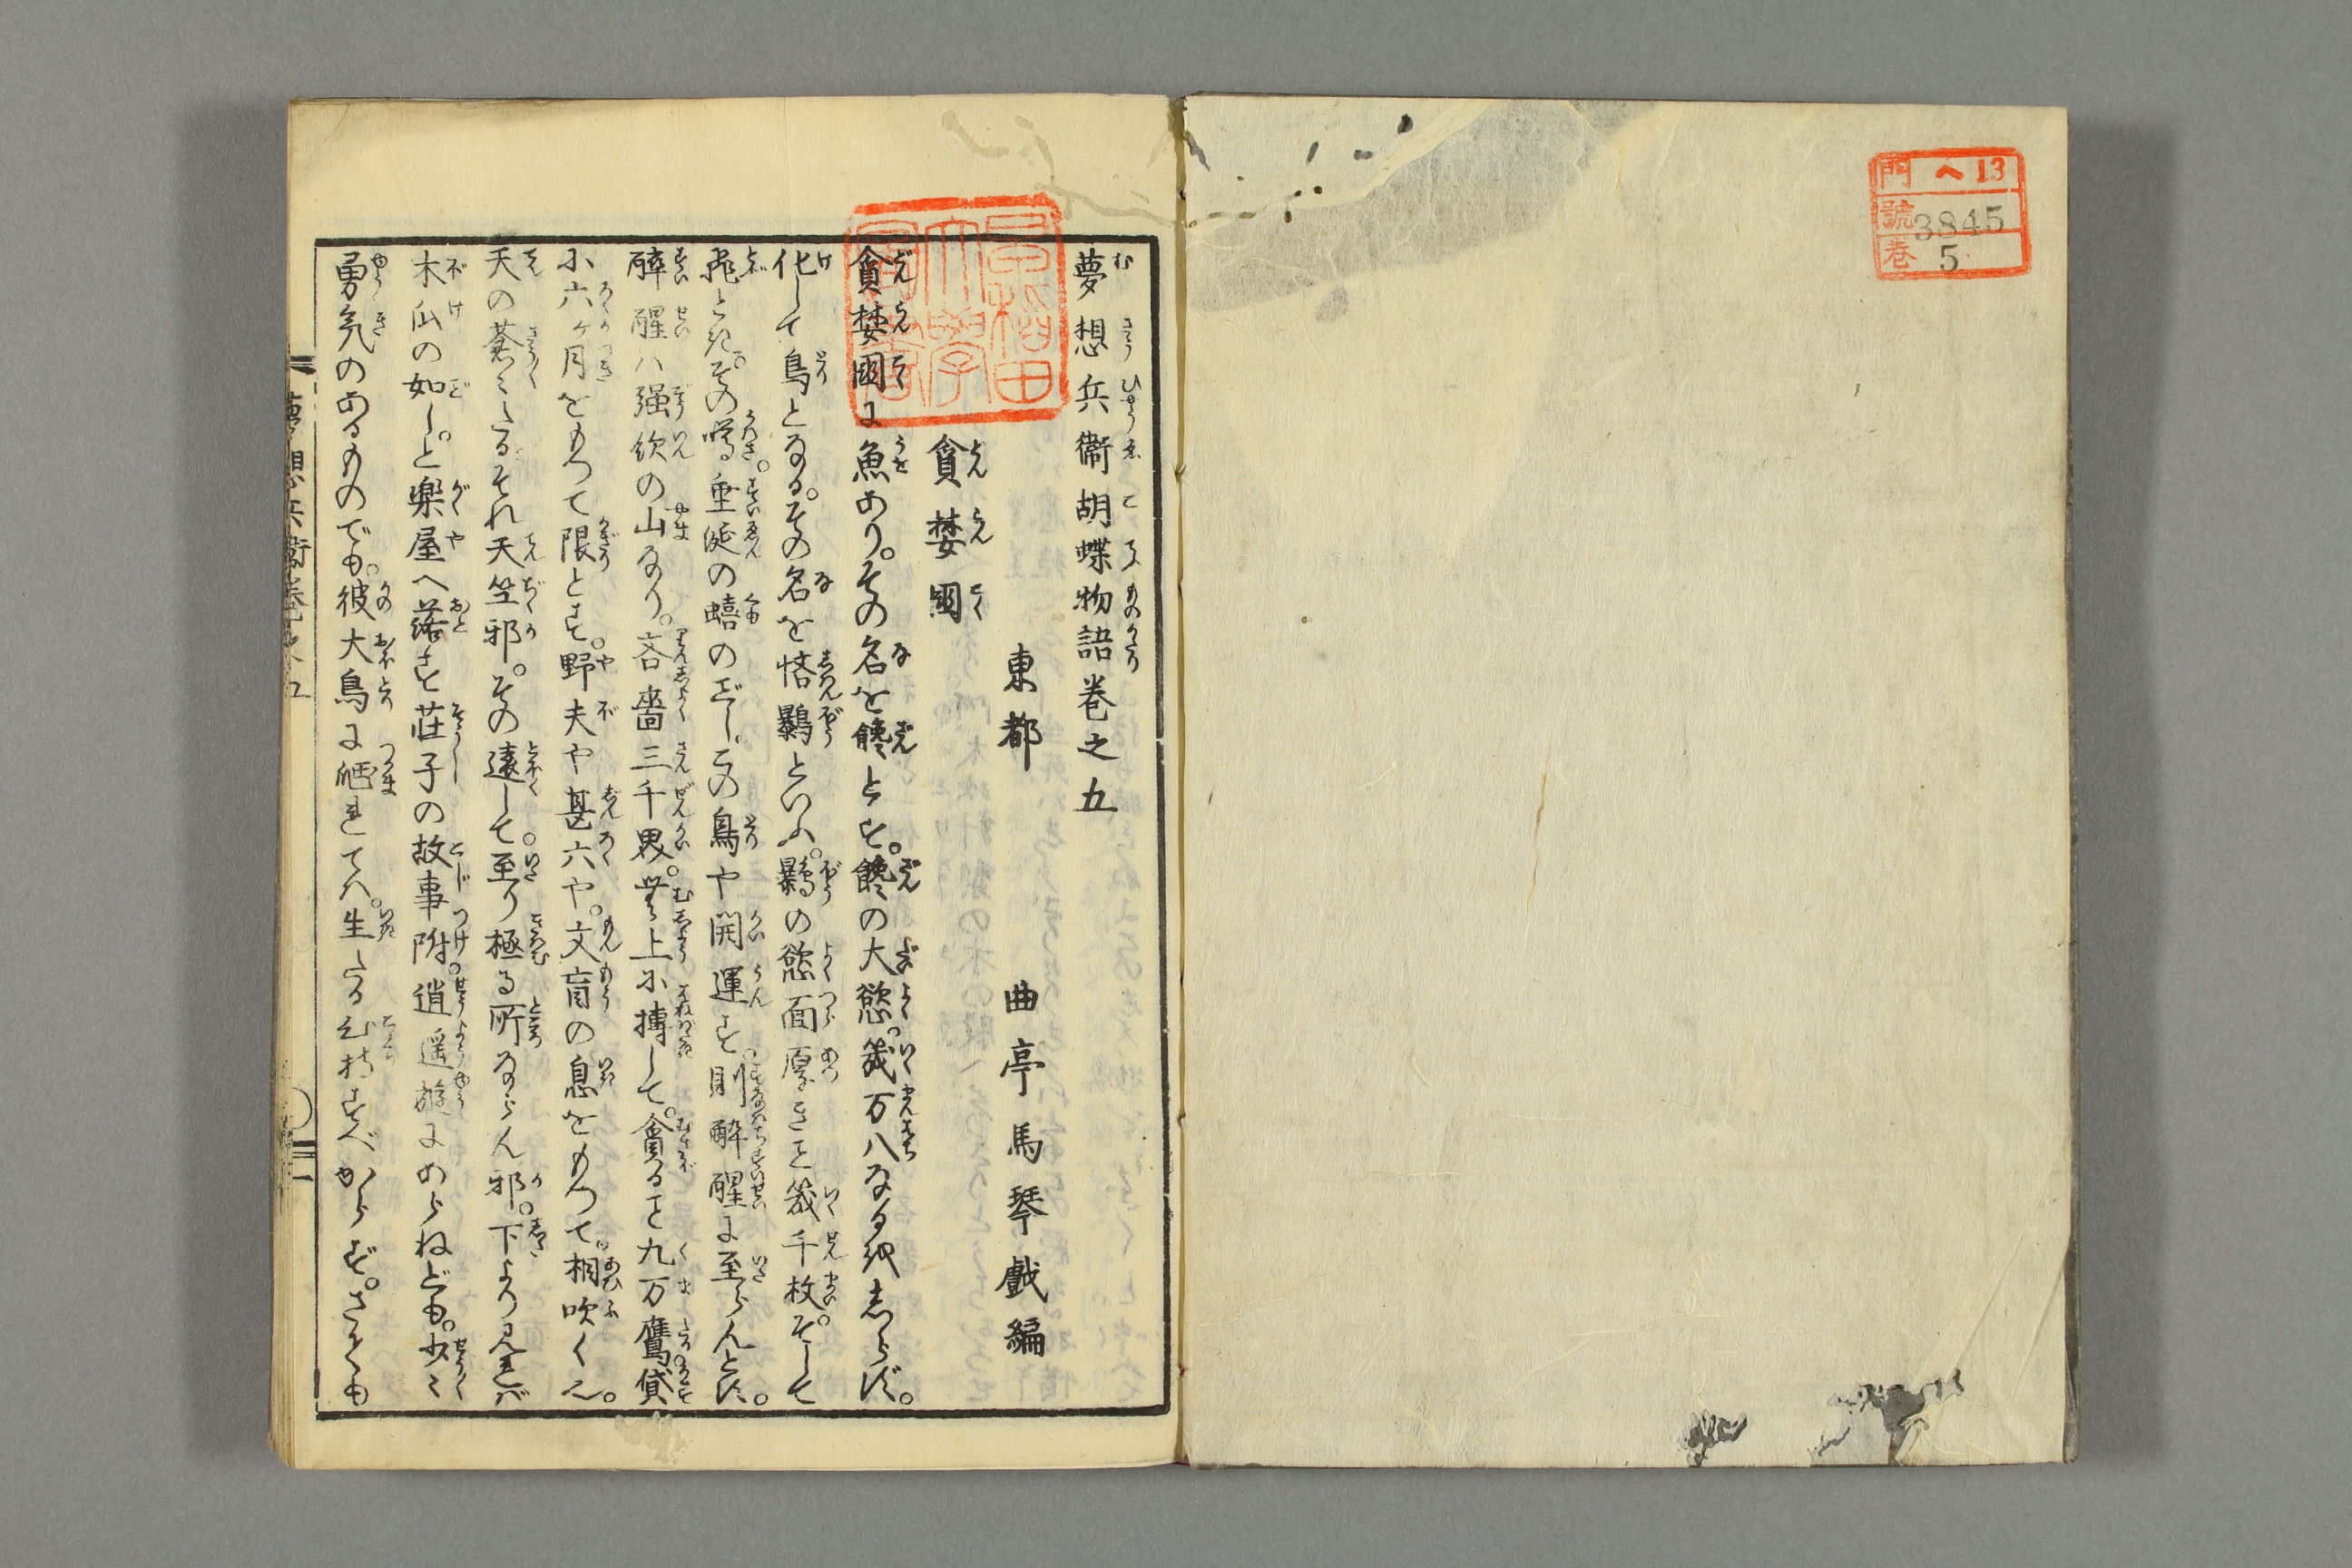 門 ヘ13
號 3845
巻 5
夢想兵衞胡蝶物語巻之五
東都 曲亭馬琴戲編
貪婪國
貪婪國に魚あり。その名を饞とす。饞の大慾。幾万八なるをしらず。
化して鳥となる。その名を悋鷃といふ。鷃の慾面厚きこと幾千枚。そして
飛とき。その噂。垂涎の蟢のごし。この鳥や開運す。則酔醒に至らんとす。
酔醒ハ强欲の山なり。吝嗇三千界。無上に搏して。貪ること九万鷹貸
に六ケ月をもつて限とす。野夫や甚六や。文盲の息をもつて。相吹くん。
天の蒼々たるそれ天竺邪。その遠して。至り極る所ならん邪。下より見れバ
木瓜の如し。と樂屋へ落す莊子の故事附。逍遥遊にあらねども。少々
勇気のあるものでも。彼大鳥に
生たる
べからず。さても
早稻田大學圖書